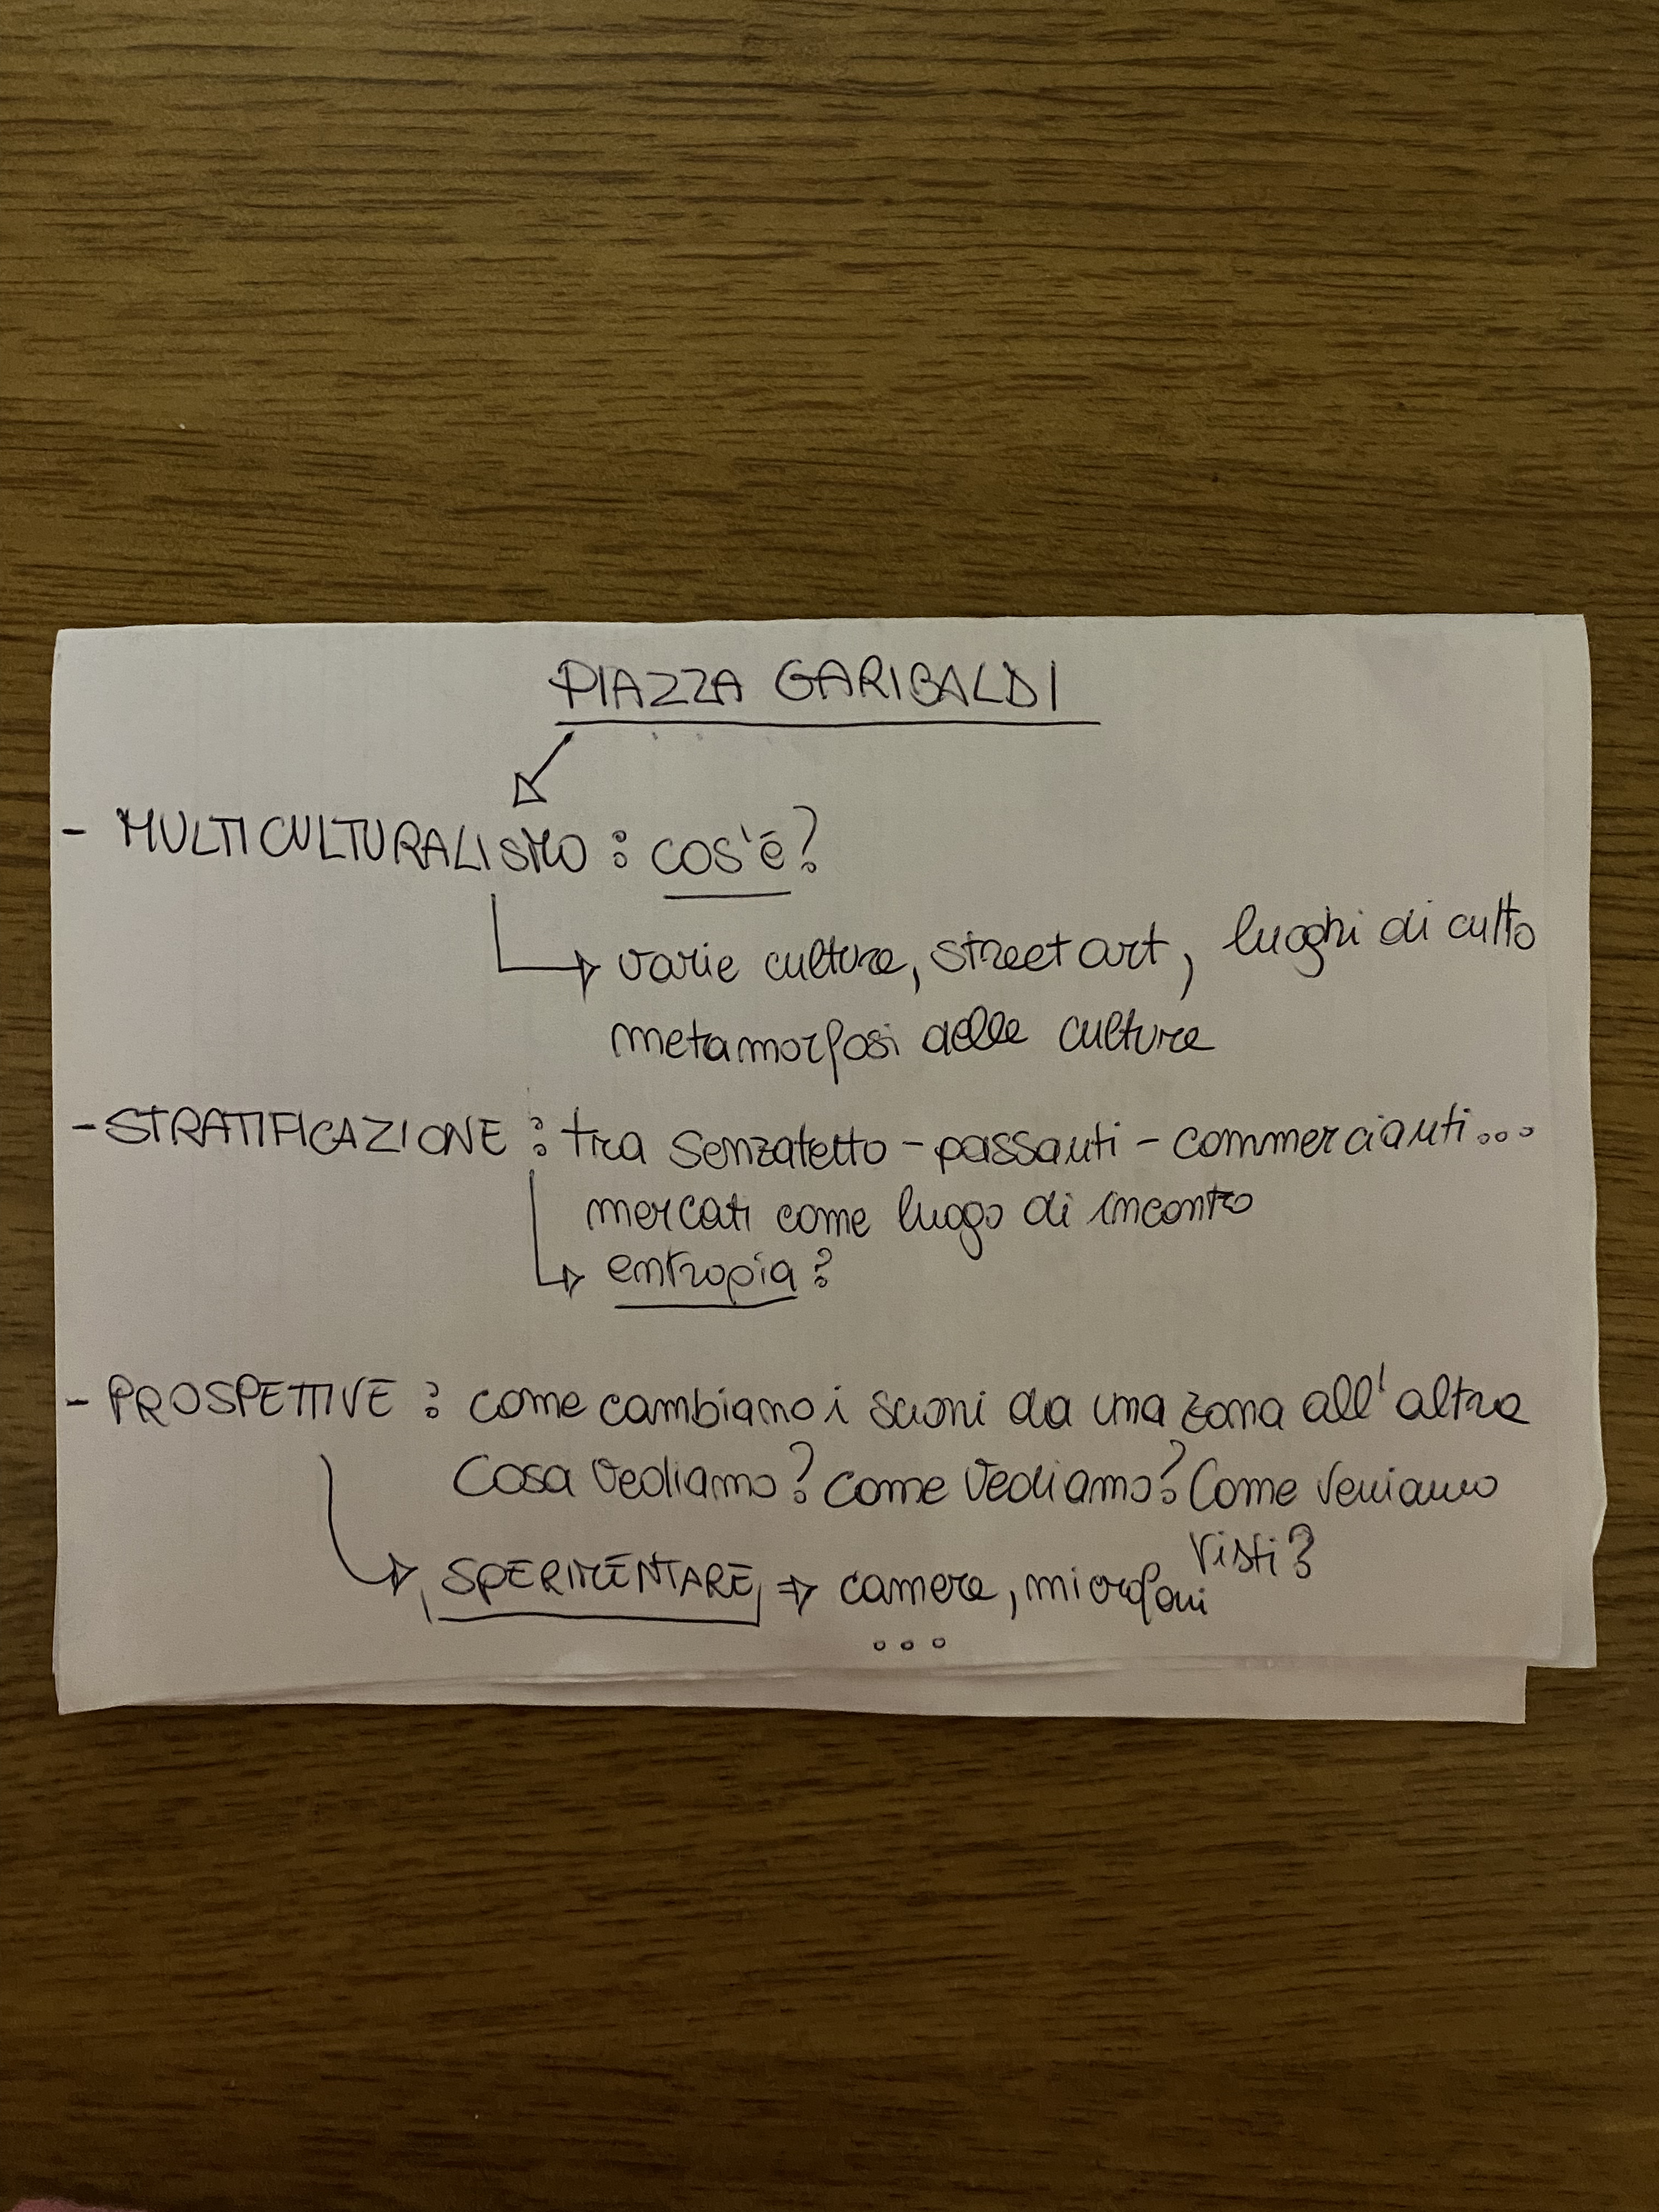 PIAZZA GARIBALDI
- MULTICULTURALISMO : cos'è?
varie culture, street art, luoghi di culto
metamorfosi delle culture
- STRATIFICAZIONE : tra senzatetto - passanti - commercianti...
mercati come luogo di incontro
entropia?
- PROSPETTIVE : come cambiano i suoni da una zona all'altra
Cosa vediamo? Come vediamo? Come veniamo
visti?
SPERIMENTARE ⇒ camere, microfoni
...